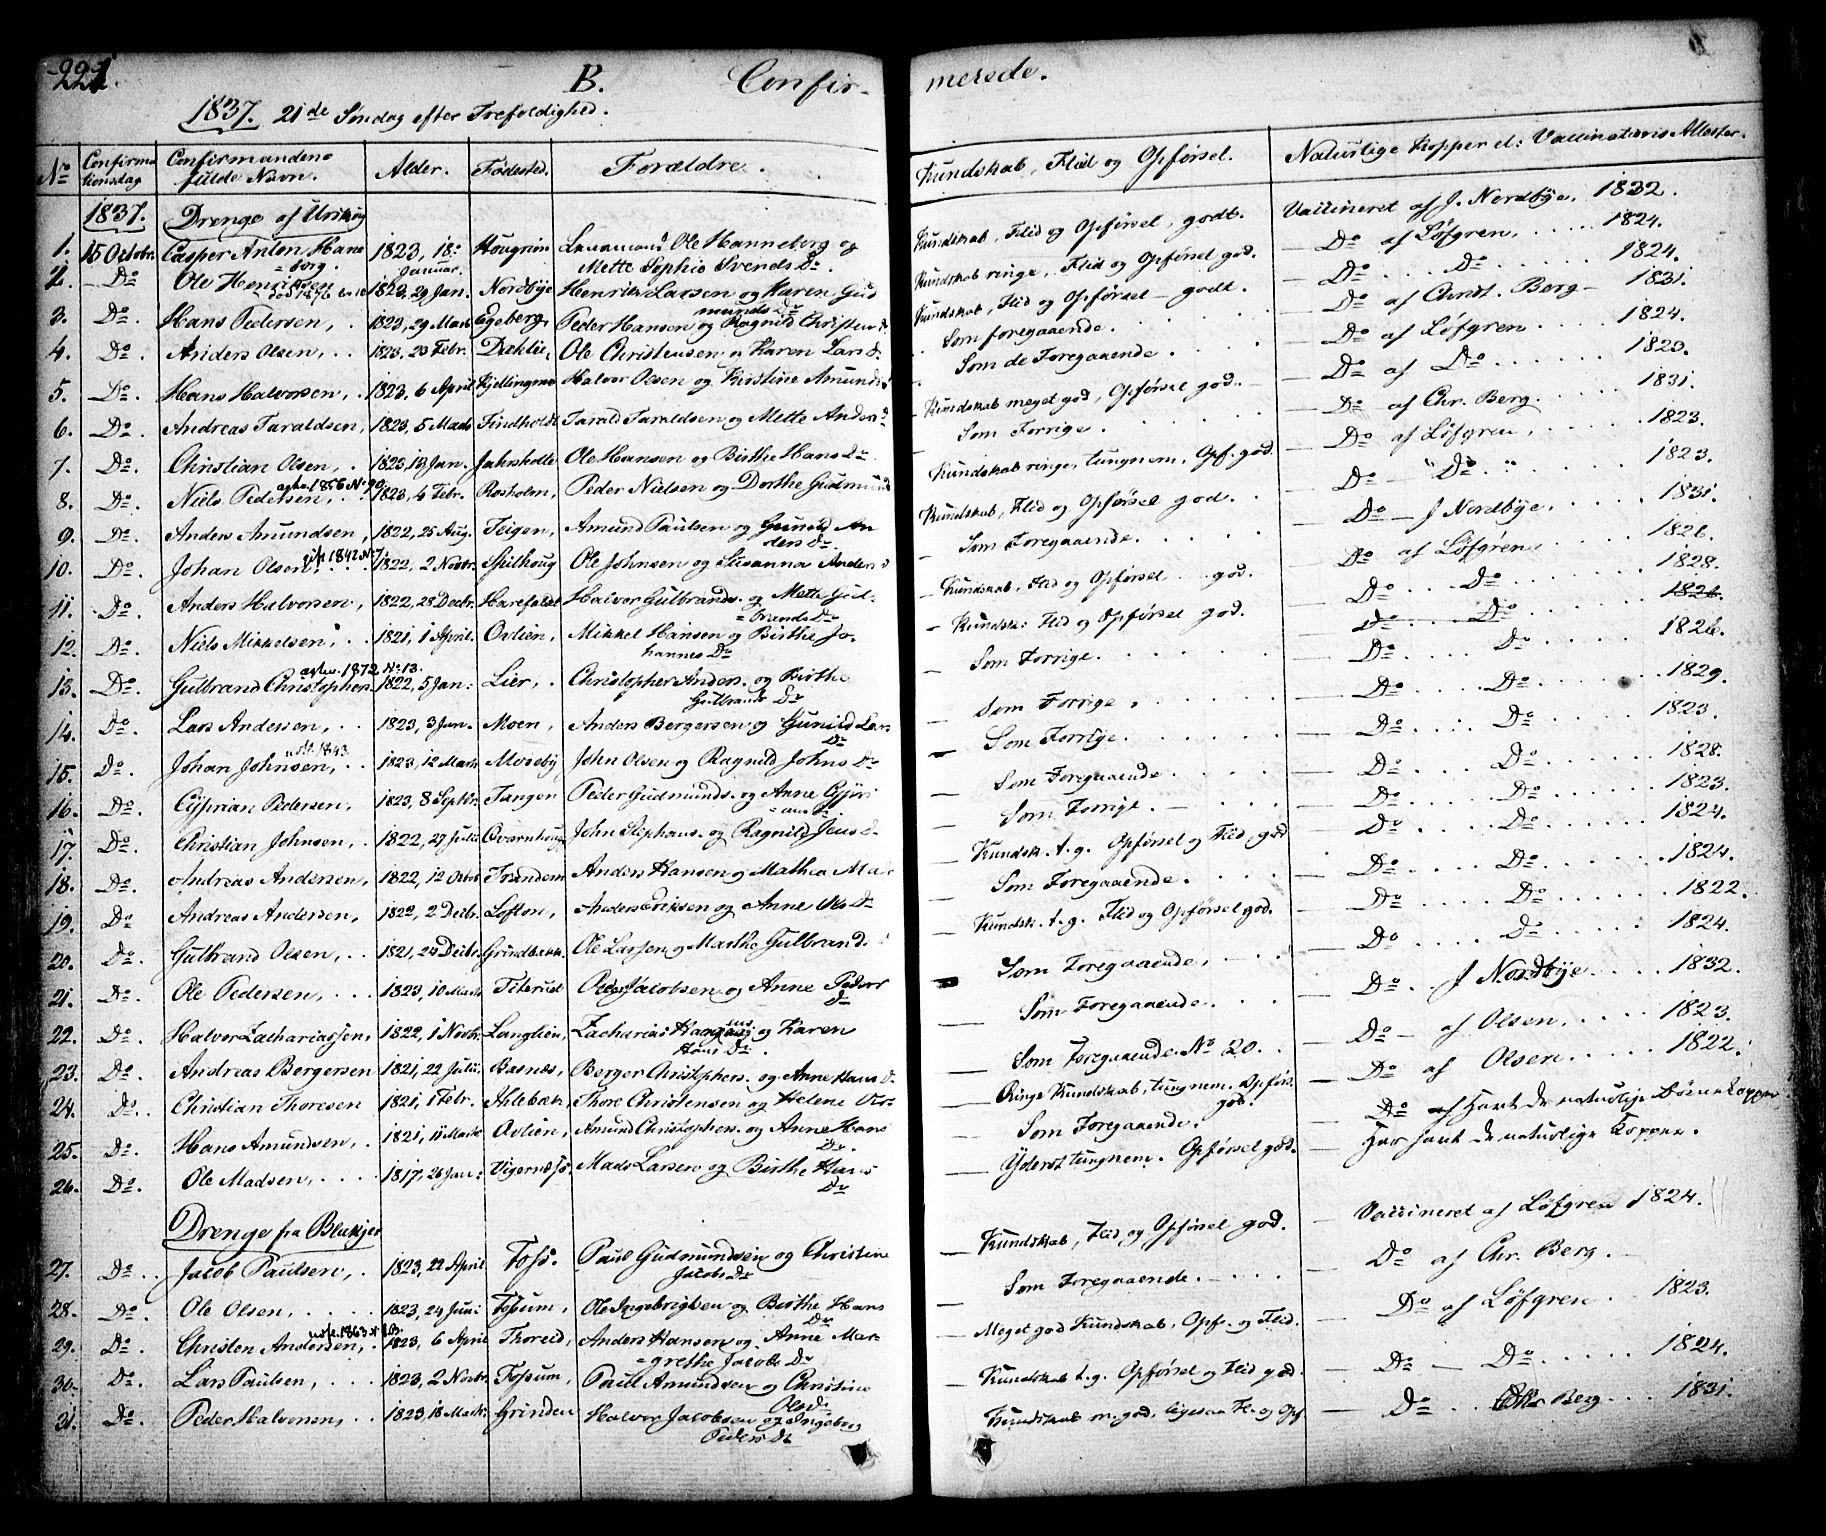 221.
B. Confirmerede.
1837. 21de Søndag efter Trefoldighed.
No Confirmationsdag Confirmandens fulde Navn. Alder. Fødested. Forældre. Kundskab, Flid og Opførsel. Naturlige Kopper el: Vaccinations Attester.
1837. Drenge af Urskoug
1. 15 Octobr. Casper Anton Hanneborg. 1823, 18. Januar. Hougrim Ole Hanneborg og Mette Sophie Svends Dr. Kundskab, Flid og Opførsel, godt. Vaccineret af J. Nordbye, 1832.
2. Do. Ole Henriksen 1823, 29 Jan. Nordbye Henrik Larsen og Karen Gudmunds Dr Kundskab ringe, Flid og Opførsel god. — Do af Løfgren, 1824.
3. Do. Hans Pedersen, 1823, 29 Mart. Egeberg, Peder Hansen og Ragnild Christen D. Kundskab, Flid og Opførsel — godt. — Do Do 1824.
4. Do. Anders Olsen, 1823, 20 Febr. Dæhlie, Ole Christensen og Karen Lars D. Som foregaaende. — Do af Christ. Berg — 1831.
5. Do. Hans Halvorsen, 1823, 6 April Kjellingmo Halvor Olsen og Kirstine Amunds D Som de Foregaaende. — Do af Løfgren 1824.
6. Do. Andreas Taraldsen, 1823, 5 Mads Findholdt Tarald Taraldsen og Mette Anders D Kundskab meget god, Opførsel god. — Do af Do 1823.
7. Do. Christian Olsen, 1823, 19 Jan. Jahrsholle Ole Hansen og Birthe Hans Dr. Som Forrige. — Do af Chr. Berg. 1831.
8. Do. Niels Pedersen, 1856 No 90 1823, 4 Febr. Rosholm, Peder Nielsen og Dorthe Gudmunds Kundskab ringe, tungnem, Opf. god. — Do af Løfgren, 1823.
9. Do. Anders Amundsen, 1822, 25 Aug. Teigen, Amund Paulsen og Gunild Anders Dr. Kundskab, Flid og Opførsel god. — Do — "Do" 1823.
10. Do. Johan Olsen, 1842 No 7. 1822, 2 Novbr. Spilhoug Ole Johnsen og Susanna Anders D — Som Foregaaende. — Do — J Nordbye, 1831.
11. Do. Anders Halvorsen, 1822, 28 Decbr. Harefaldet Halvor Gulbrands. og Mette Gulbrands Dr — Kundskab, Flid og Opførsel god. — Do af Løfgren 1826.
12. Do. Niels Mikkelsen, 1821, 1 April. Ovlien, Mikkel Hansen og Birthe Johannes Dr — Kundsk: Flid og Opførsel god. — Do Do 1828.
Do Do 1826.
13. Do. Gulbrand Christophers. 1872 No 13. 1822, 5 Jan: Lier, Christopher Anders. og Birthe Gulbrands Dr — Som Forrige. — Do Do 1826.
14. Do. Lars Andersen, 1823, 3 Jan. Moen, Anders Bergersen og Gunild Lars Dr — Som Forrige, — Do Do 1829.
15. Do. Johan Johnsen, 1843 1823, 12 Mart. Moseby John Olsen og Ragnild Johns Dr — Som Forrige. — Do Do 1823.
16. Do. Cyprian Pedersen, 1823, 8 Septbr. Tangen Peder Gudmunds. og Anne — Som Foregaaende. — Do Do 1828.
17. Do. Christian Johnsen, 1822, 27 Julii Qvarnhoug John Stephans. og Ragnild Jens D. — Som Forrige. — Do Do 1823.
18. Do. Andreas Andersen, 1822, 12 Octbr Trandem Anders Hansen og Mathea — Kundsk. t. g. Opførsel og Flid god — Do Do 1824.
19. Do. Andreas Andersen, 1822, 2 Decbr. Lofton, Anders Eriksen og Anne Ols Dr — Som Foregaaende. — Do Do 1824.
20. Do. Gulbrand Olsen, 1821, 24 Decbr. Grindbakk. Ole Larssen og Marthe Gulbrand. — Kundsk. t. g. Flid og Opførsel god. — Do Do 1822.
21. Do. Ole Pedersen, 1823, 10 Mart. Titerud Peder Jacobsen og Anne Peders Dr — Som Foregaaende, — Do Do 1824.
22. Do. Halvor Zachariassen, 1822, 1 Novbr. Langlien, Zacharias og Karen Hans Dr. — Som Foregaaende. — Do J Nordbye 1832.
23. Do. Andreas Bergersen 1821, 22 Julii, Basnæs, Berger Christophers. og Anne Hans D. — Som Foregaaende. No 20. — Do — af Olsen, 1823.
24. Do. Christian Thoresen 1821, 1 Febr. Ihlebæk, Thore Christensen og Helene — Ringe Kundskab, tungnem. Opførs. god. — Do af Olsen 1822.
25. Do. Hans Amundsen, 1821, 11 Mart. Ovlien, Amund Christophers. og Anne Hans Dr. — Som Foregaaende. — Do af Havt de naturlige Børnekopper
26. Do. Ole Madsen, 1817, 26 Jan: Vigernæss Mads Larsen og Birthe Hans Dr — Yderst tungnem. Opførsel god. — Har havt de naturlige Kopper.
Drenge fra Blakjer
27. Do. Jacob Paulsen, 1823, 22 April Foss. Paul Gudmundsen og Christine Jacobs Dr — Kundskab, Flid og Opførsel god. — Vaccineret af Løfgren 1824.
28. Do. Ole Olsen, 1823, 24 Juni Fossum, Ole Ingebrigtsen og Birthe Hans Dr — Som Foregaaende. — Do af Chr. Berg.
29. Do. Christen Andersen, 1863 1823, 6 April Thoreid, Anders Hansen og Anne Margrethe Jacobs Dr — Meget god Kundskab, Opf. og Flid. — Do af Løfgren 1823.
30. Do. Lars Paulsen, 1823, 2 Novbr. Fossum, Paul Amundsen og Christine Ols Dr — Kundskab t. g. Opførsel og Flid god. — Do — Do 1824.
31. Do. Peder Halvorsen, 1823, 18 Mart. Grinden Halvor Jacobsen og Ingeborg Peders Dr — Kundskab m. god, ligesaa Fl. og Opf — Do Chr Berg 1831.